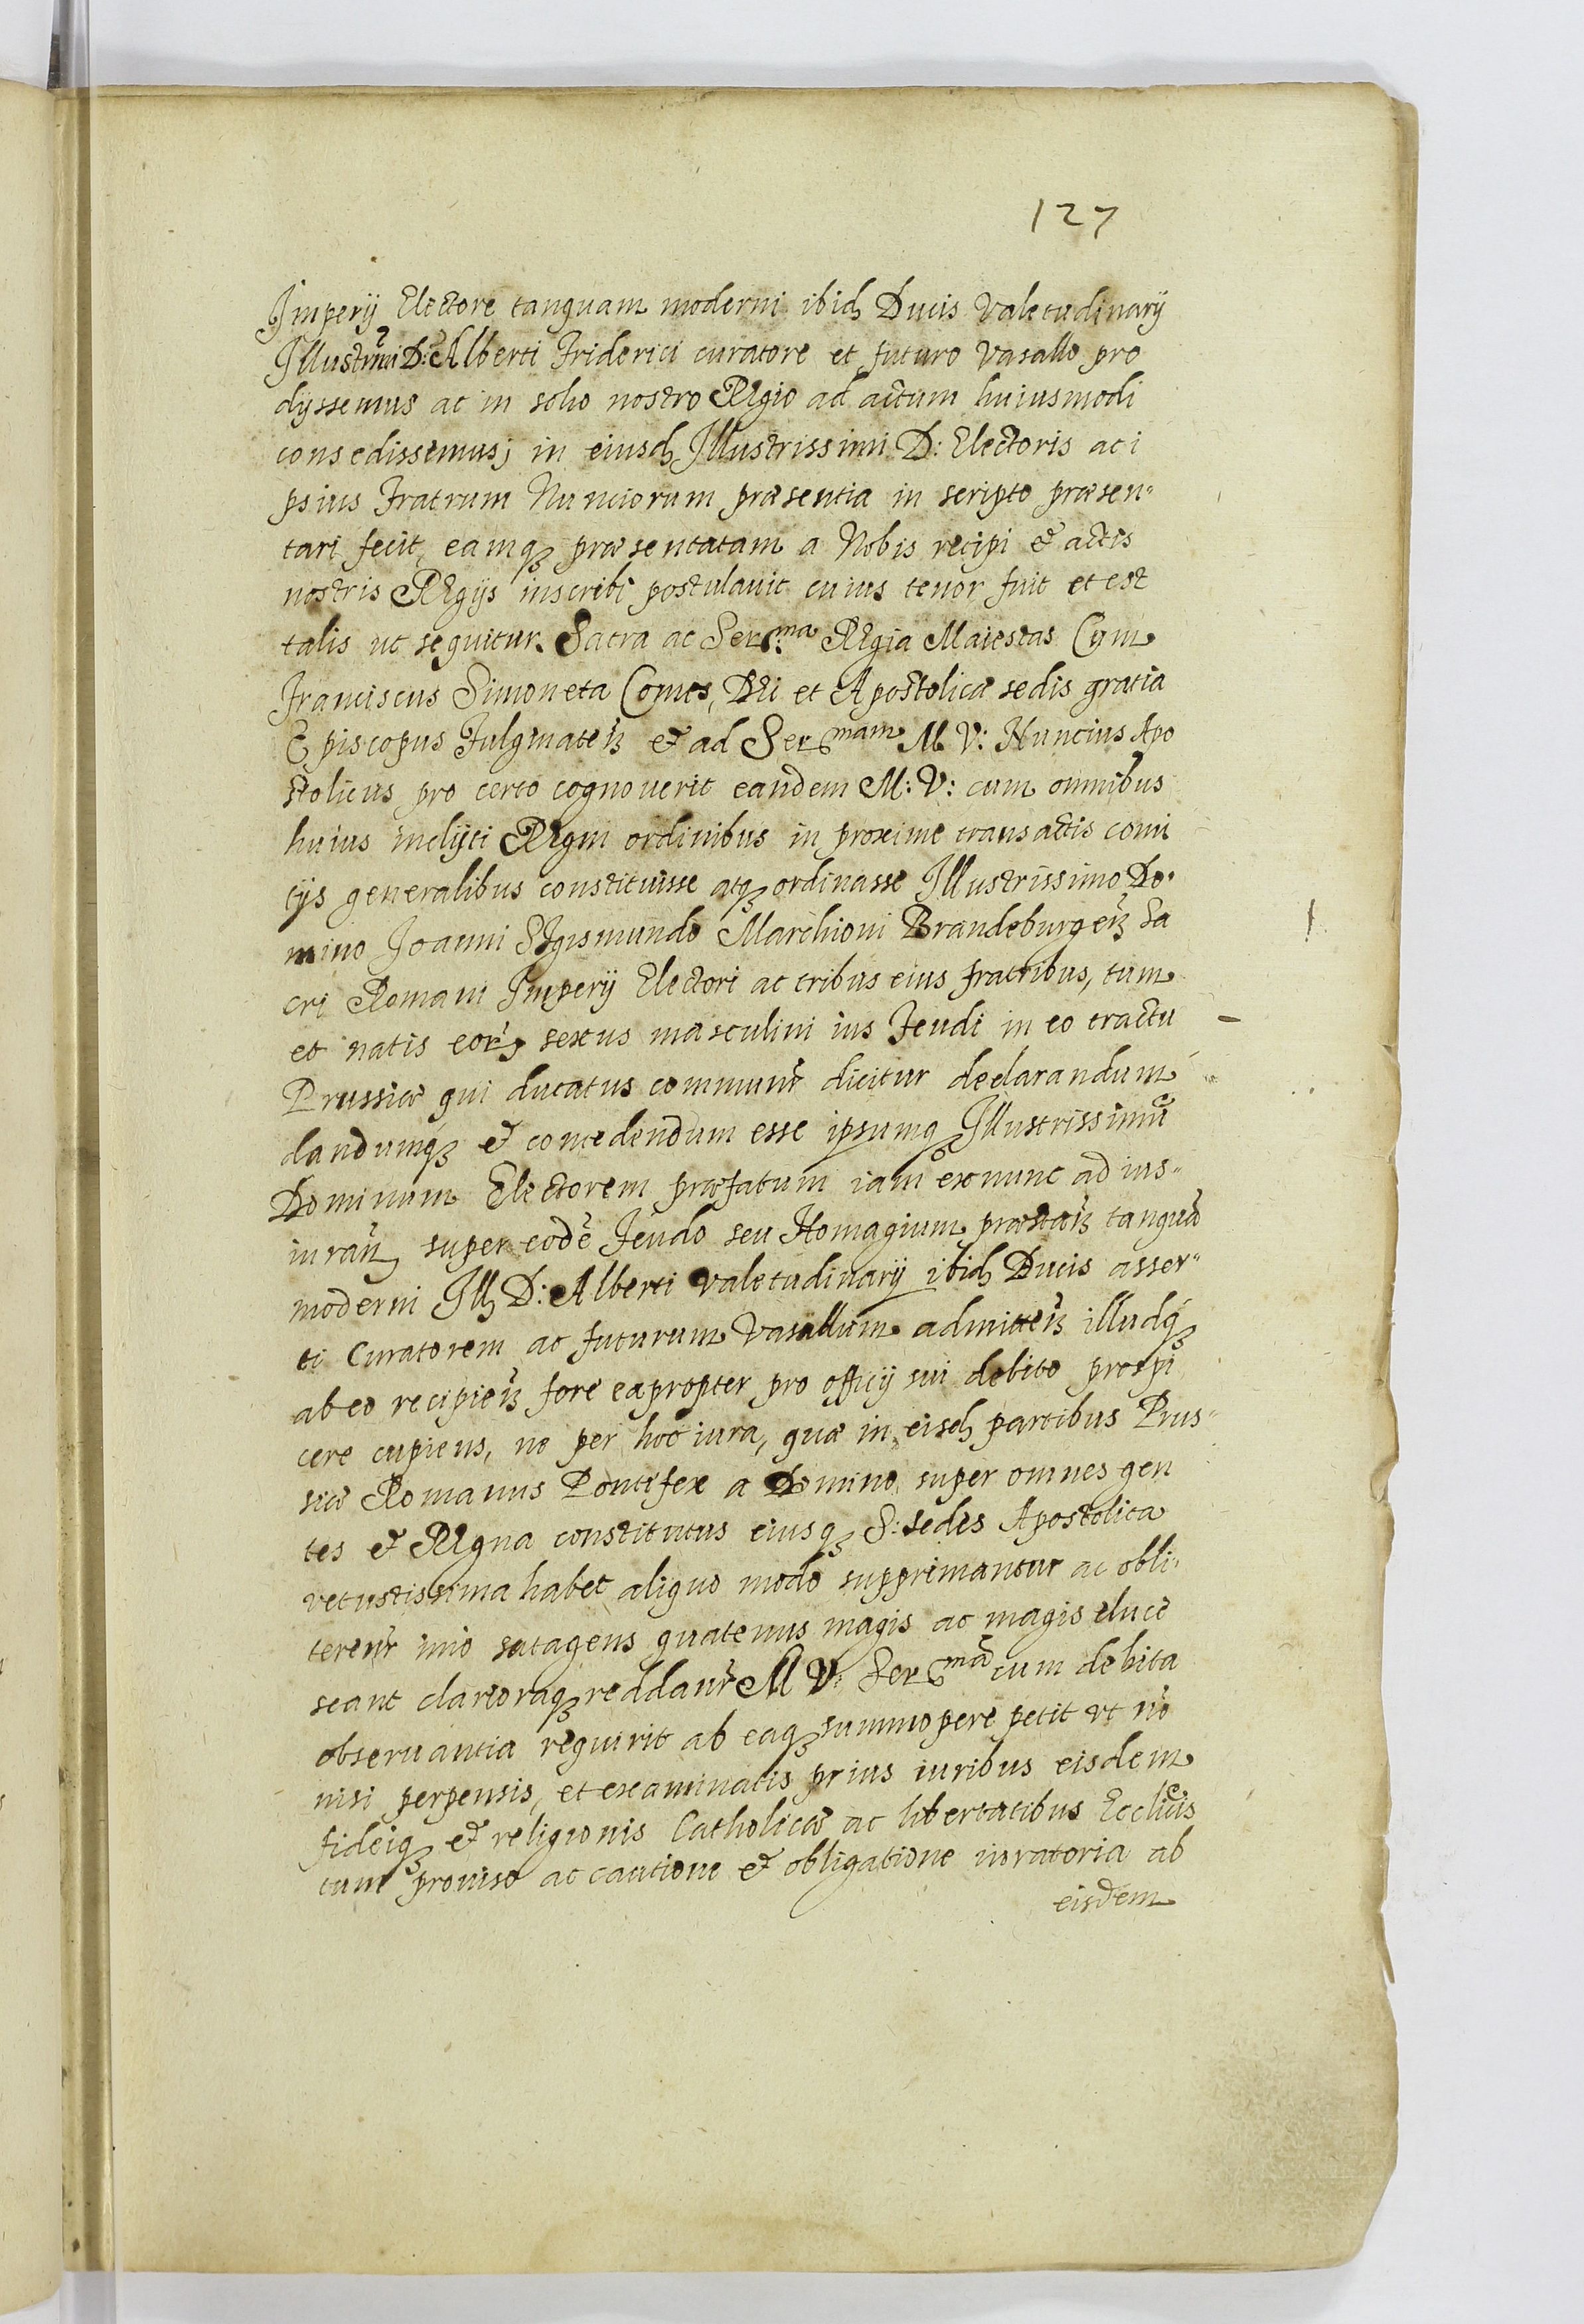 127
Imperij Electore tanquam moderni ibid. Ducis Valetudinarij
Illustrmi D: Alberti Friderici curatore et futuro Vasallo pro
dijssemus ac in solio nostro Regio ad actum huiusmodi
consedissemus; in eiusd. Illustrissimi D: Electoris ac i
psius Fratrum Nunciorum præsentia in scripto præsen-
tari fecit, eamqꝫ præsentatam a Nobis recipi et actis
nostris Regijs inscribi postulavit cuius tenor fuit et est
talis ut sequitur. Sacra ac Ser.ma Regia Maiestas Cum
Franciscus Simoneta Comes, Dei et Apostolicæ sedis gratia
Episcopus Fulginateñ et ad Ser.mam M V: Nuncius Apo
stolicus pro certo cognoverit eandem M: V: cum omnibus
huius inclyti Regni ordinibus in proxime transactis comi
tijs generalibus constituisse atqꝫ ordinasse Illustrissimo Do-
mino Joanni Sigismundo Marchioni Brandeburgeñ Sa
cri Romani Imperij Electori ac tribus eius fratribus, tum
et natis eorꝫ sexus masculini ius Feudi in eo tractu
Prussiæ qui ducatus communr dicitur declarandum
dandumqꝫ et concedendum esse ipsumqꝫ Illustrissimũ
Dominum Electorem præfatum iam exnunc ad ius-
iurañ super eodẽ Feudo seu Homagium præstañ tanquã
moderni Ill. D: Alberti valetudinarij ibid. Ducis asser-
ti Curatorem ac futurum Vasallum admitteñ illudqꝫ
ab eo recipieñ fore eapropter pro officij sui debito prospi
cere cupiens, ne per hoc iura, quæ in eisd. partibus Prus-
siæ Romanus Pontifex a Domino super omnes gen
tes et Regna constitutus eiusqꝫ S: sedes Apostolica
vetustissima habet aliquo modo supprimantur ac obli-
terenr imo satagens quatenus magis ac magis eluce
scant clarioraqꝫ reddanr M V. Ser.mã cum debita
observantia requirit ab eaqꝫ summopere petit ut nõ
nisi perpensis, et examinatis prius iuribus eisdem
fideiqꝫ et religionis Catholicæ ac libertatibus Eccliцis
cum proviso ac cautione et obligatione iuratoria ab
eisdem